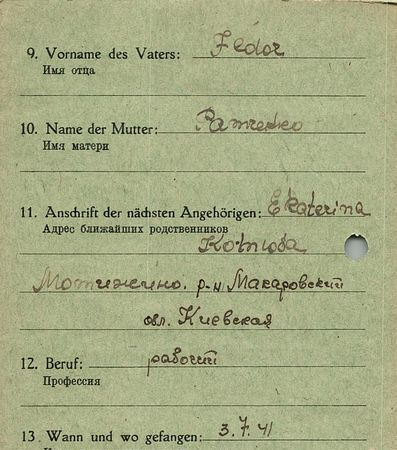 9. Vorname des Vaters: Fedor
Имя отца
10. Name der Mutter:
Имя матери
11. Anschrift der nächsten Angehörigen: Ekaterina
Адрес ближайших родственников
Мотижино. р-н Макаровский
обл. Киевская
12. Beruf: рабочий
Профессия
13 Wann und wo gefangen: 3.7.41